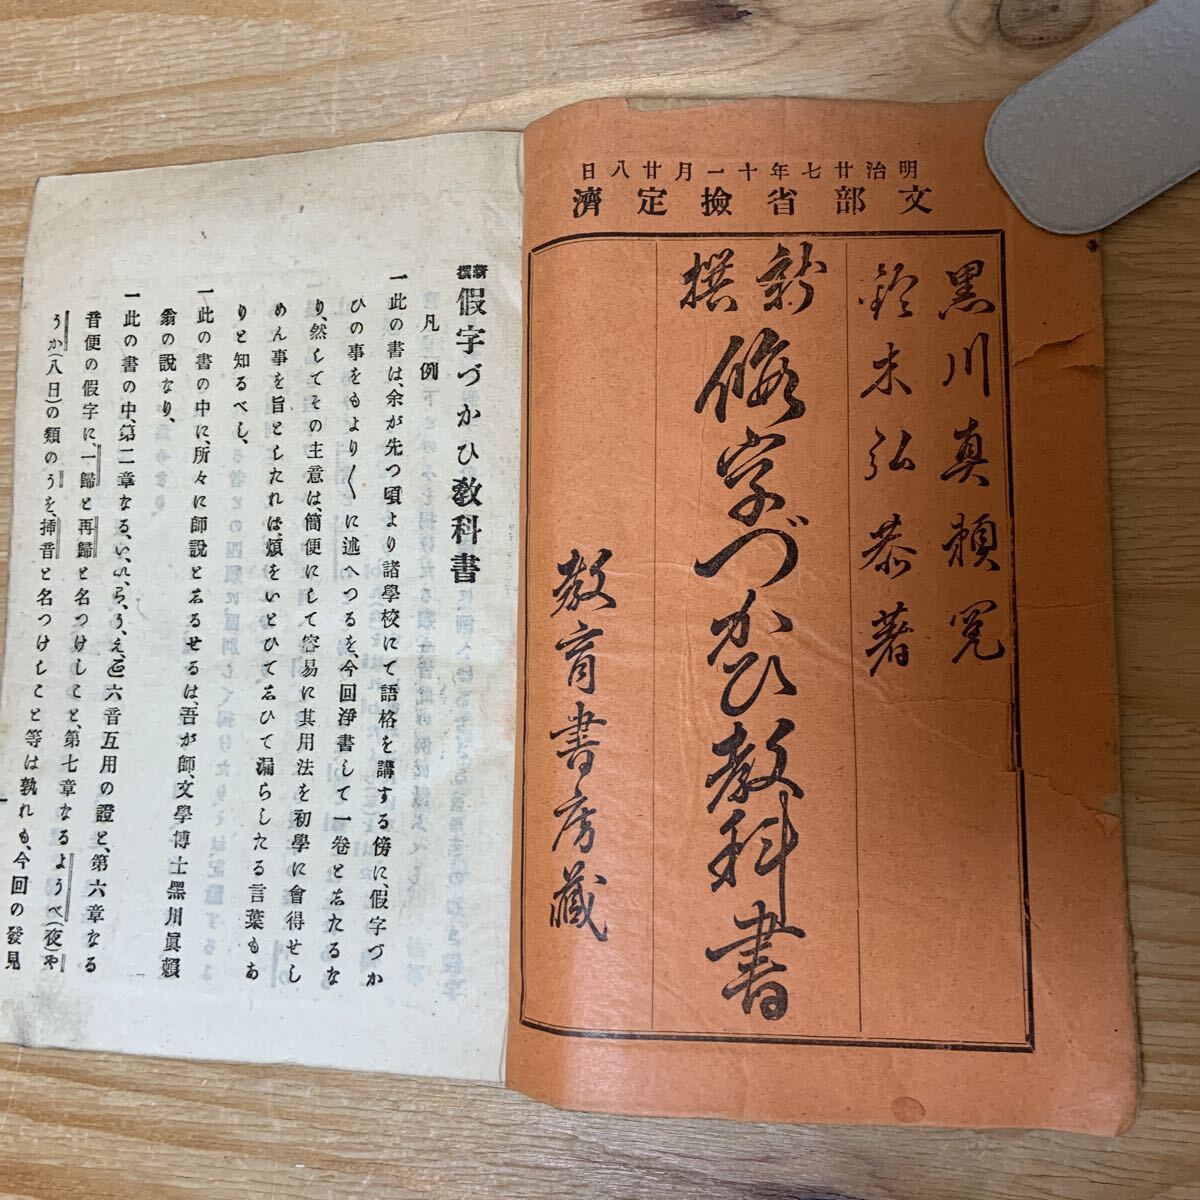 明治廿七年十一月廿八日
文部省撿定濟
黒川真頼閲
鈴木弘恭著
新撰
假字づかひ教科書
教育書房藏
新撰 假字づかひ敎科書
凡例
一此の書は、余が先つ頃より諸學校にて語格を講する傍に、假字づか
ひの事をもより〳〵に述へつるを、今回淨書して一卷とゑたるな
り、然してその主意は、簡便にして容易に其用法を初學に會得せし
めん事を旨としたれば、煩をいとひてゑひて漏らしたる言葉もあ
りと知るべし、
一此の書の中に、所々に師說とゑるせるは、吾が師、文學博士黑川眞賴
翁の說なり、
一此の書の中、第二章なる、い、ゐ、う、え、ゑ六音互用の證と、第六章なる
音便の假字に、一歸と再歸と名つけしこと、第七章なるようべ(夜)や
うか(八日)の類のうを、挿音と名つけしこと等は孰れも、今回の發見
一